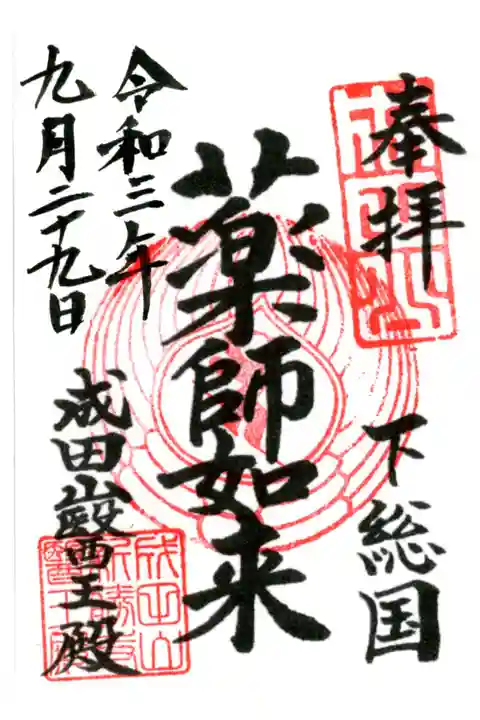 奉拝
下総国
薬師如来
令和三年
九月二十九日
成田山醫王殿
成田山